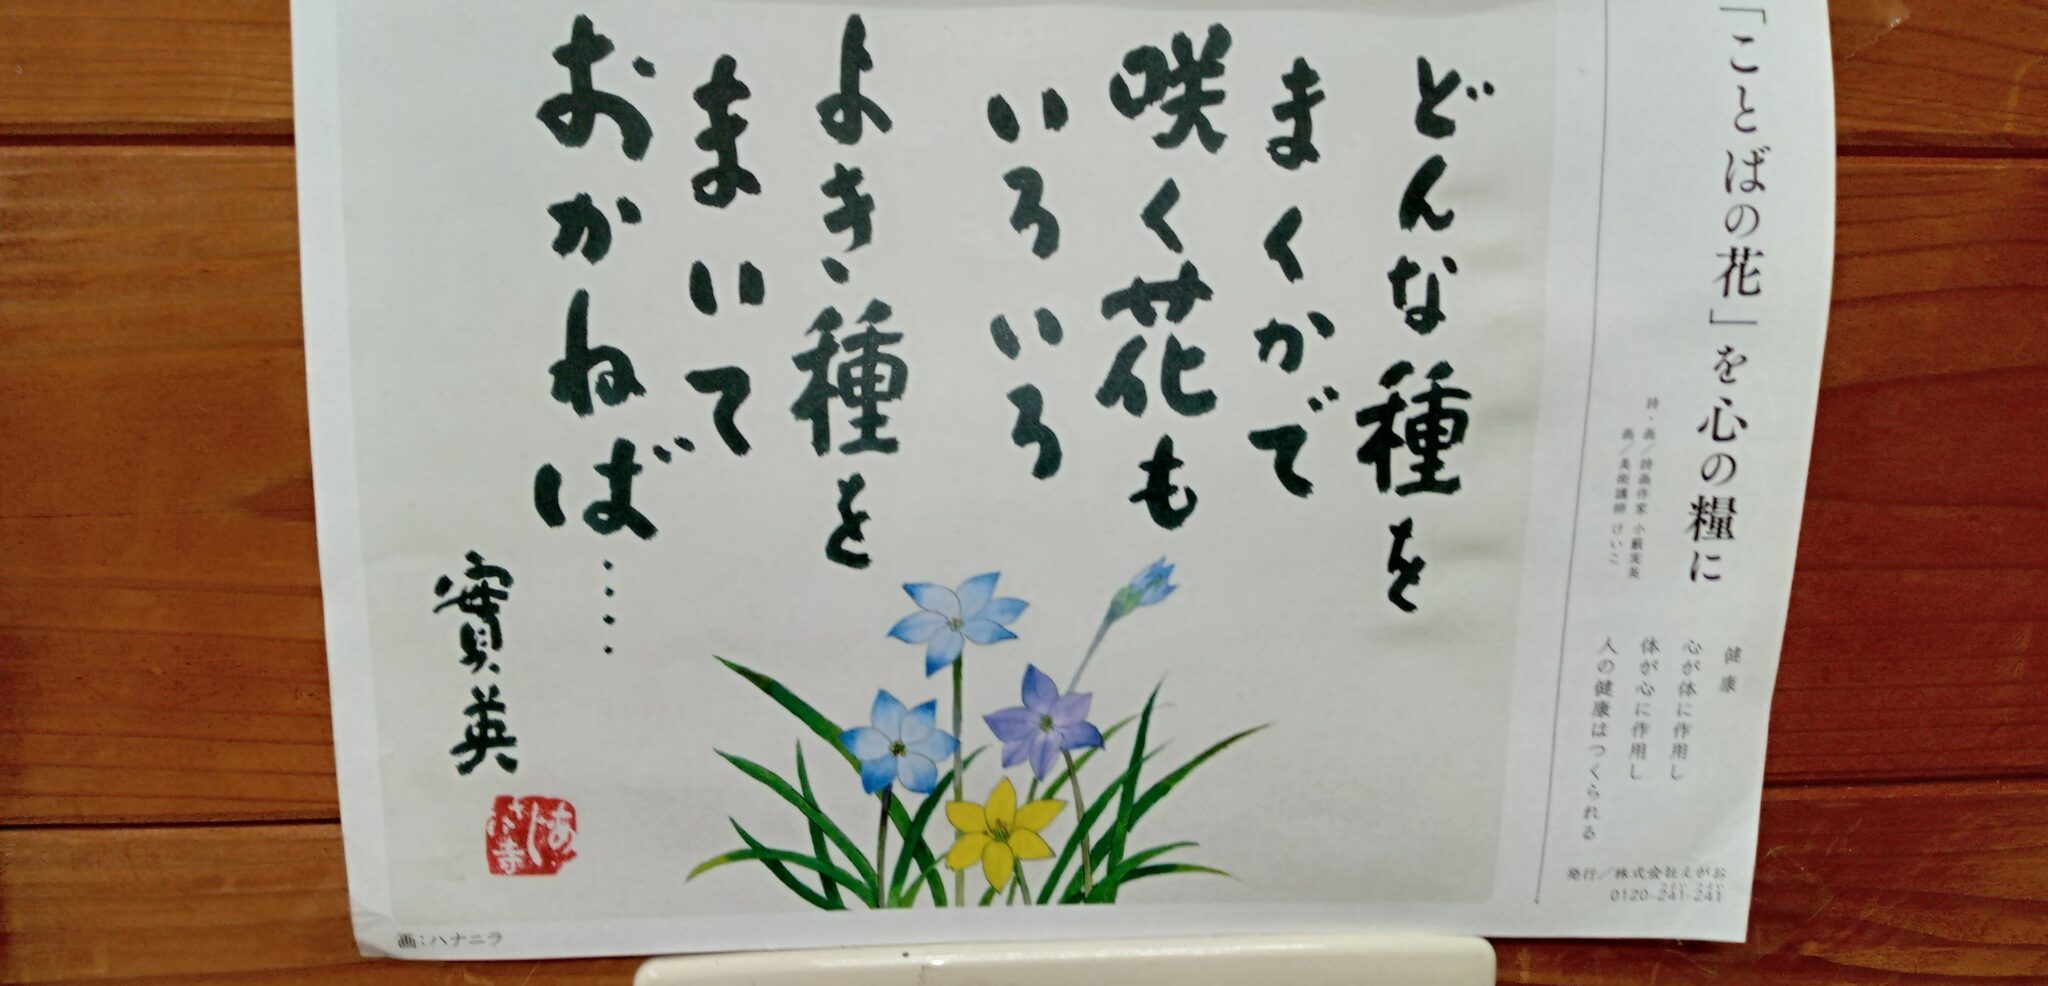 「ことばの花」を心の糧に
詩・画／詩画作家 小藪実英
画／美術講師 けいこ
健康
心が体に作用し
体が心に作用し
人の健康はつくられる
発行／株式会社えがお
0120-241-241
どんな種を
まくかで
咲く花も
いろいろ
よき種を
まいて
おかねば……
實英
画：ハナニラ